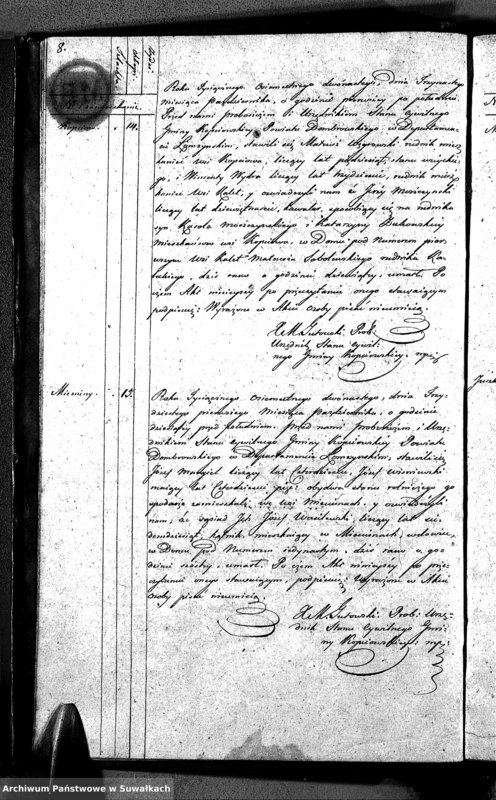 8.
Roku Tysiącznego Osiemsetnego dwónastego, dnia Trzynastego
Miesiąca Października, o godzinie pierwszey po południu.
Przed nami proboszczem i Urzędnikiem Stanu Cywilnego
Gminy Kopciowskiey Powiatu Dombrowskiego w Departamen-
cie Łomżyńskim, stawili się Mateusz rudnik miesz-
kaniec wsi Kopciowa, liczący lat pięćdziesiąt stanu
go, i Wincenty liczący lat trzydzieści, rudnik miesz-
kaniec wsi Kalet, y oświadczyli nam że Jóżef
liczący lat dziewiętnaście, kawaler, sposobiący się na rudnika
syn Karola i Katarzyny
Mieszkańców wsi Kopciowa, w Domu pod Numerem pier-
wszym wsi Kalet Mateusza Sobolewskiego rudnika Ka-
letskiego, dziś rano o godzinie dziewiątey, umarł. Po
czem Akt ninieyszy po przeczytaniu onego stawaiącym
podpisany: Wyrażone w Akcie osoby pisać nieumieią.
X M. Gutowski Prob:
Urzędnik Stanu cywil-
nego Gminy Kopciowskiey. mp
14.
Mieciuny. 15.
Roku Tysiącznego Osiemsetnego dwónastego, dnia Trzy-
dziestego pierwszego Miesiąca Października, o godzinie
dziesiątey przed południem. Przed nami Proboszczem i Urzę-
dnikiem Stanu Cywilnego Gminy Kopciowskiey Powiatu
Dombrowskiego w Departamencie Łomżyńskim, stawili się
Józef liczący lat Czterdzieści, Józef Wiśniewski
maiący lat Czterdzieści pięć: obydwa stanu rolniczego go
spodarze zamieszkali we wsi Mieciunach, y oświadczyli
nam, że sąsiad Ich Józef Wasilewski, liczący lat sie-
demdziesiąt, mieszkaiący w Mieciunach, wdowiec,
w Domu pod Numerem iedynastym, dziś rano o go-
dzinie szóstey, umarł. Po czem Akt ninieyszy po prze-
czytaniu onego stawaiącym, podpisany: Wyrażone w Akcie
Osoby pisać nieumieią.
X M. Gutowski. Prob: Urzę-
dnik Stanu Cywilnego Gmi-
ny Kopciowskiey: mp:
Archiwum Państwowe w Suwałkach